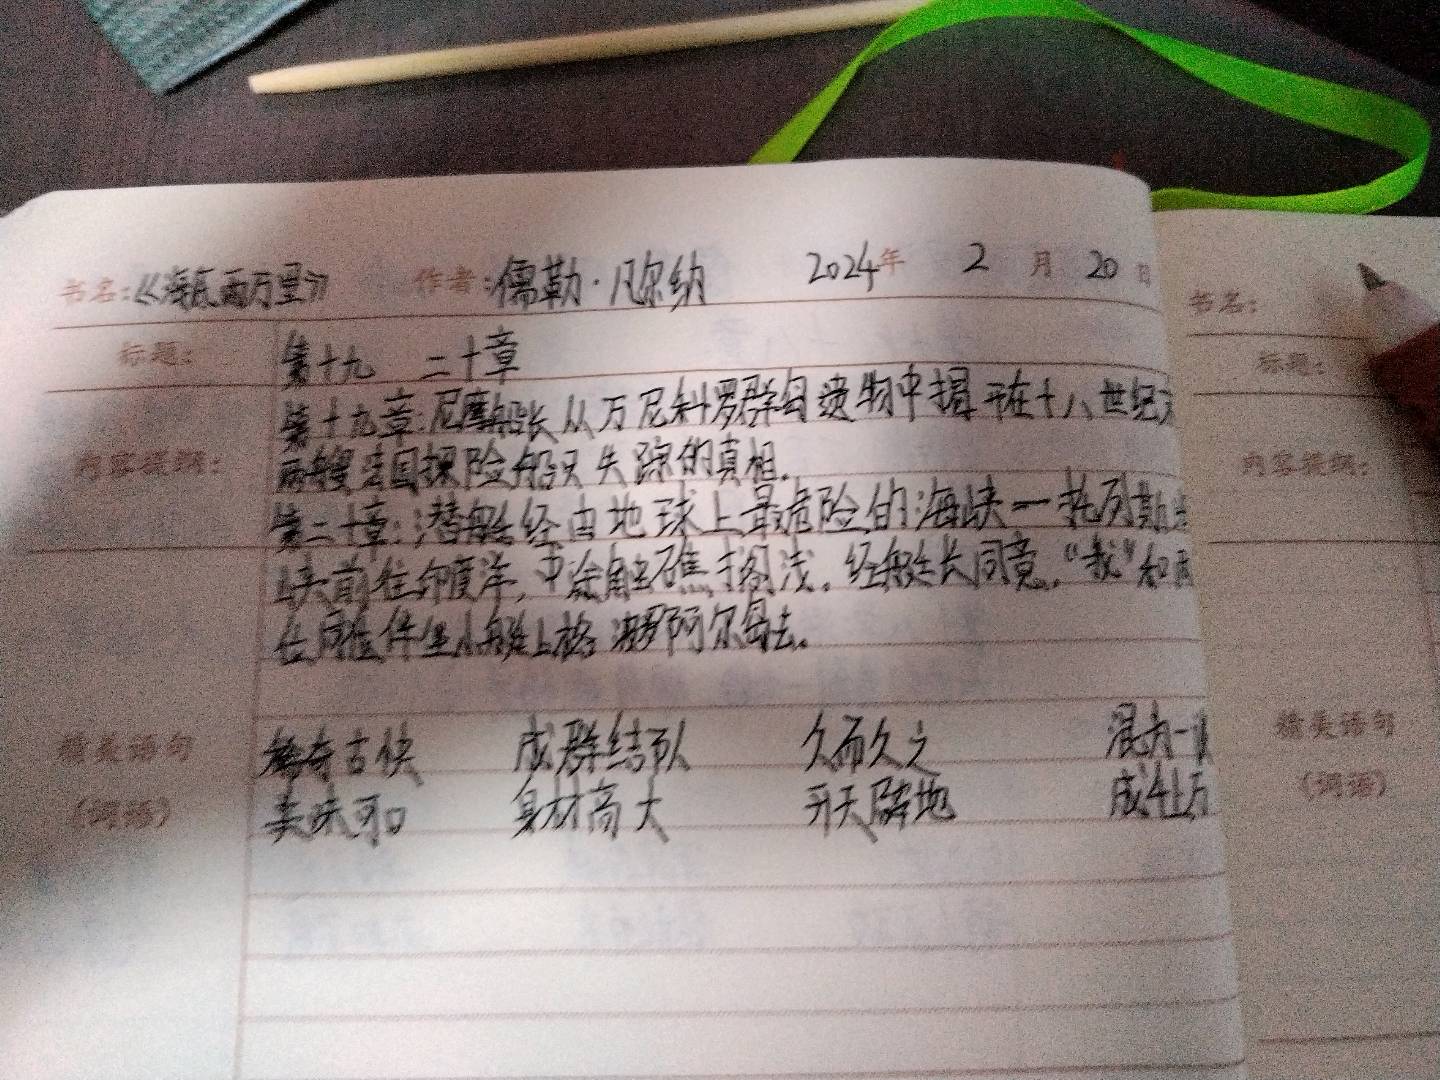 书名:《海底两万里》 作者:儒勒·凡尔纳 2024年 2月 20日
标题: 第十九 二十章
内容提纲: 第十九章:尼摩船长从万尼科罗群岛遗物中揭开在十八世纪
两艘法国探险船只失踪的真相。
第二十章:潜艇经由地球上最危险的海峡一托列斯
峡前往印度洋,中途触礁搁浅。经艇长同意,“我”和两
位同伴坐小艇上格 波罗阿尔岛去。
精美语句 稀奇古怪 成群结队 久而久之 混为一
(词语) 美味可口 身材高大 开天辟地 成千上万
书名:
标题:
内容提纲:
精美语句
(词语)